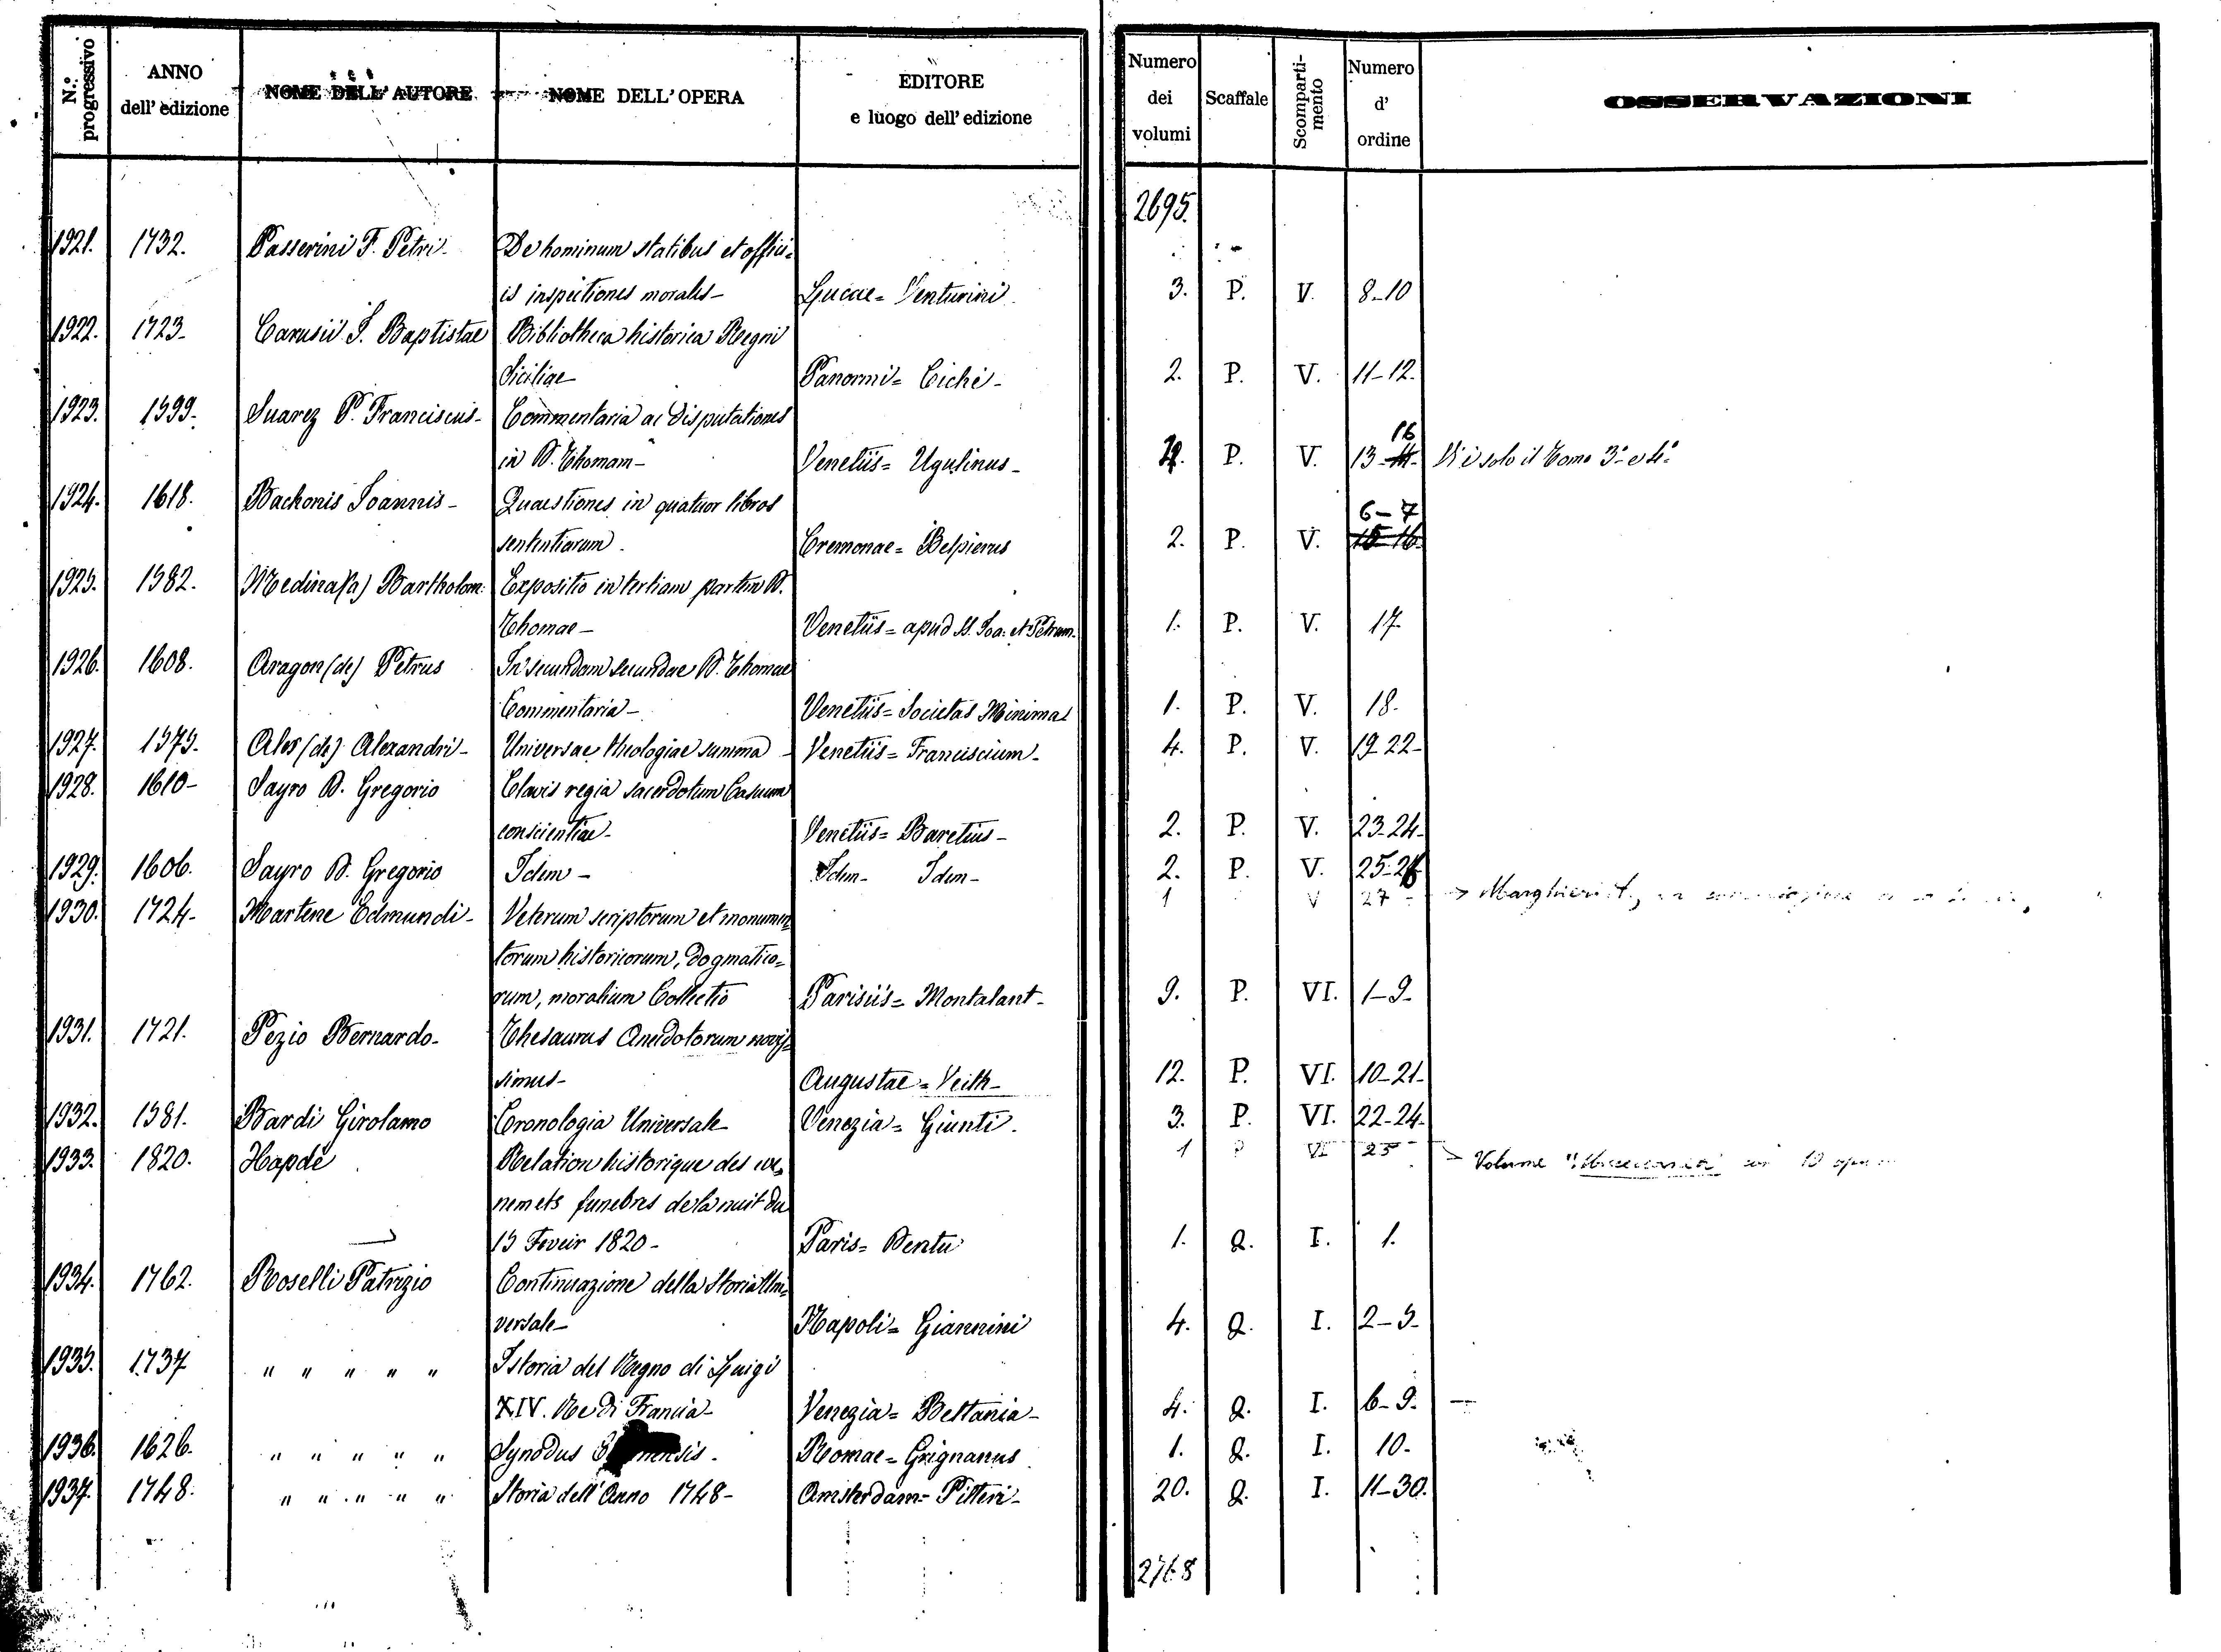 N.º progressivo | ANNO dell' edizione | NOME DELL' AUTORE | NOME DELL' OPERA | EDITORE e luogo dell' edizione | Numero dei volumi | Scaffale | Scomparti-mento | Numero d' ordine | OSSERVAZIONI
2695.
1921. 1732. Passerini F. Petri- De hominum statibus et offici=
is inspectiones morales- Lucae= Venturini 3. P. V. 8-10
1922. 1723- Carusii J. Baptistae Bibliotheca historica Regni
Siciliae Panormi= Cichè- 2. P. V. 11-12.
1923. 1599- Suarez P. Franciscus- Commentaria ac Disputationes
16
in D. Thomam- Venetiis= Ugulinus- P. V. 13-14. Vi è solo il Tomo 3º e 4º
1924. 1618. Bachonis Joannis- Quaestiones in quatuor libros
6-7
sententiarum. Cremonae= Belpierus 2. P. V. 15-16.
1925. 1582. Medina (a) Bartholom: Expositio in tertiam partem D.
Thomae- Venetiis= apud SS. Joa: et Petrum. 1. P. V. 17.
1926. 1608. Aragon (de) Petrus In secundam secundae D. Thomae
Commentaria- Venetiis= Societas Minimas 1. P. V. 18.
1927. 1575. Ales (de) Alexandri- Universae theologiae summa- Venetiis= Franciscium- 4. P. V. 19-22-
1928. 1610- Sayro D. Gregorio Clavis regia sacerdotum Casuum
conscientiae- Venetiis= Baretius- 2. P. V. 23-24-
1929. 1606. Sayro D. Gregorio Idem- Idem- Idem- 2. P. V. 25-26
1 V 27 -> Margh
1930. 1724- Martene Edmundi- Veterum scriptorum et monumen=
torum historicorum, dogmatico=
rum, moralium Collectio Parisiis= Montalant- 9. P. VI. 1-9-
1931. 1721. Pezio Bernardo- Thesaurus Anecdotorum novis=
simus- Augustae= Veith- 12. P. VI. 10-21-
1932. 1581. Bardi Girolamo Cronologia Universale Venezia= Giunti. 3. P. VI. 22-24-
1 P VI 25 -> Volume "Miscellanea" con opus
1933. 1820. Hapdè Relation historique des eve=
nemets funebres de la nuit du
13 Feveir 1820- Paris= Dentu 1. Q. I. 1.
1934. 1762. Roselli Patrizio Continuazione della Storia Uni=
versale- Napoli= Giannini 4. Q. I. 2-5-
1935. 1737 " " " " " Istoria del Regno di Luigi
XIV. Re di Francia- Venezia= Bettania- 4. Q. I. 6-9. -
1936. 1626. " " " " " Synodus Romae= Grignanus 1. Q. I. 10-
1937. 1748. " " " " " Storia dell'Anno 1748- Amsterdam= Pitteri- 20. Q. I. 11-30.
2768